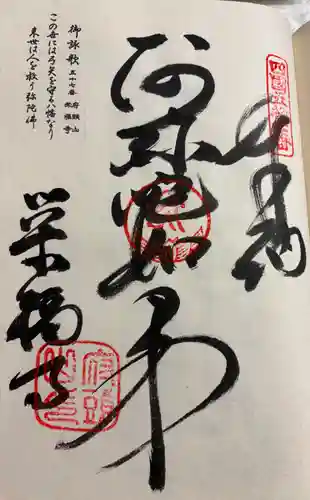 奉納
阿弥陀如来
御詠歌 五十七番 府頭山 栄福寺
この世には弓矢を守る八幡なり
来世は人を救う弥陀仏
栄福寺